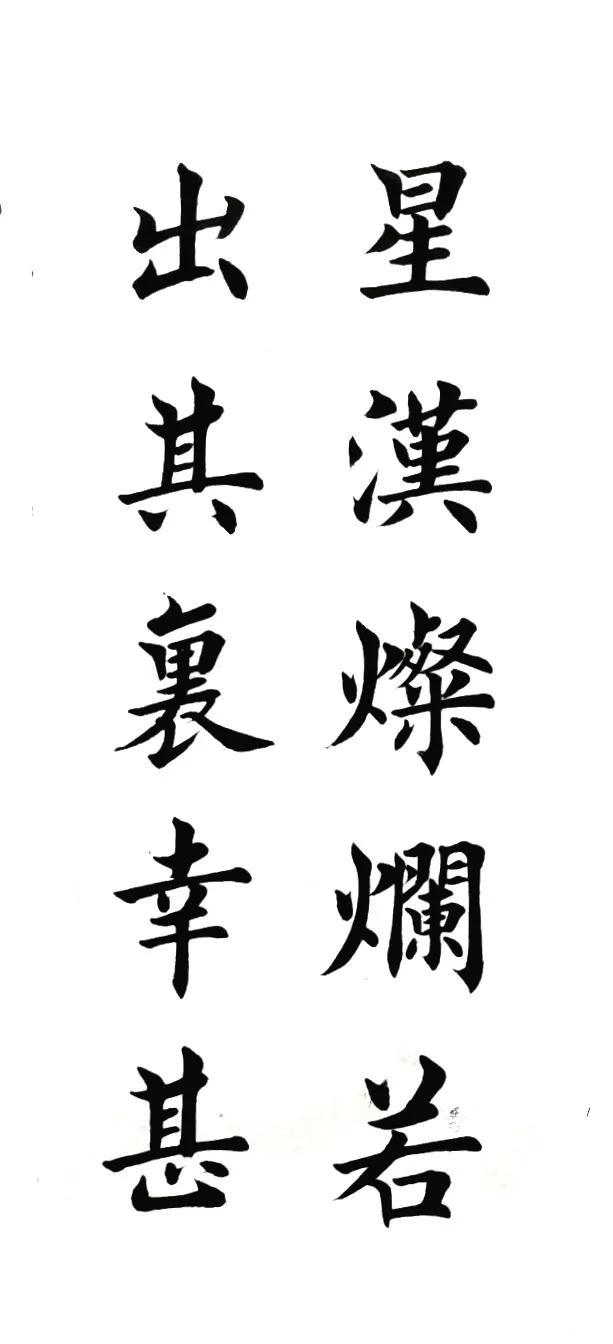 星漢燦爛若
出其裏幸甚